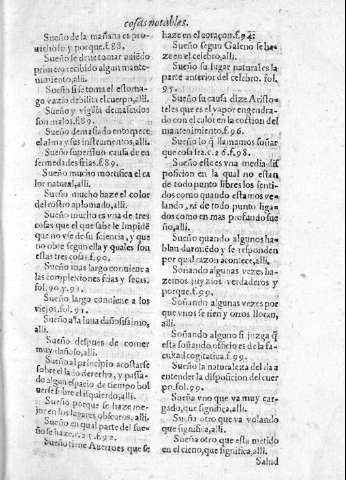 cosas notables.
Sueño de la mañana es pro-
uechoso y porque.f.88.
Sueño se deue tomar auiédo
primero recibido algun mante-
nimiento,alli.
Sueño si se toma el estoma-
go vazio debilita el cuerpo,alli.
Sueño y vigilia demasiados
son malos.f.89.
Sueño demasiado entorpece
el alma y sus instrumentos,alli.
Sueño superfluo causa de en
fermedades frias.f.89.
Sueño mucho mortifica el ca
lor natural,alli.
Sueño mucho haze el color
del rostro aplomado,alli.
Sueño mucho es vna de tres
cosas que el que sabe le impidē
que no vse de su sciencia, y que
no obre segun ella y quales son
estas tres cosas f.90.
Sueño mas largo conuiene a
las complexiones frias y secas.
fol.90.y 91.
Sueño largo conuiene a los
viejos.fol.91.
Sueño a la luna dañosissimo,
alli.
Sueño despues de comer
muy dañoso,alli.
Sueño al principio acostarse
sobre el lado derecho, y passa-
do algun espacio de tiempo bol
uerse sobre el izquierdo,alli.
Sueño porque se haze me-
jor en los lugares obscuros,alli.
Sueño en qual parte del sue-
ño se haze.c.25.f.92.
Sueño tiene Auerroes que se
haze en el coraçon.f.94.
Sueño segun Galeno se ha-
ze en el celebro,alli.
Sueño su lugar natural es la
parte anterior del celebro. fol.
95.
Sueño su causa dize Aristo-
teles que es el vapor engendra-
do con el calor en la coction del
mantenimiento.f.96.
Sueño lo q̃ llamamos soñar
que cosa sea.c.26.f.98.
Sueño este es vna media dis
posicion en la qual no estan
de todo punto libres los senti-
dos como quando estamos ve-
lando, ni de todo punto liga-
dos como en mas profundo sue
ño,alli.
Sueño quando algunos ha-
blan durmiēdo y se responden
por qual razon acontece,alli.
Soñando algunas vezes ha-
zemos juyzios verdaderos y
porque.f.99.
Soñando algunas vezes por
que vnos se rien y otros lloran,
alli.
Soñando alguno si juzga q̃
esta soñando officio es de la fa-
cultad cogitatiua.f.99.
Sueño la naturaleza del da a
entender la disposicion del cuer
po.fol.99.
Sueña vno que va muy car-
gado,que significa,alli.
Sueña otro que va volando
que significa,alli.
Sueña otro que esta metido
en el cieno,que significa,alli.
Salud